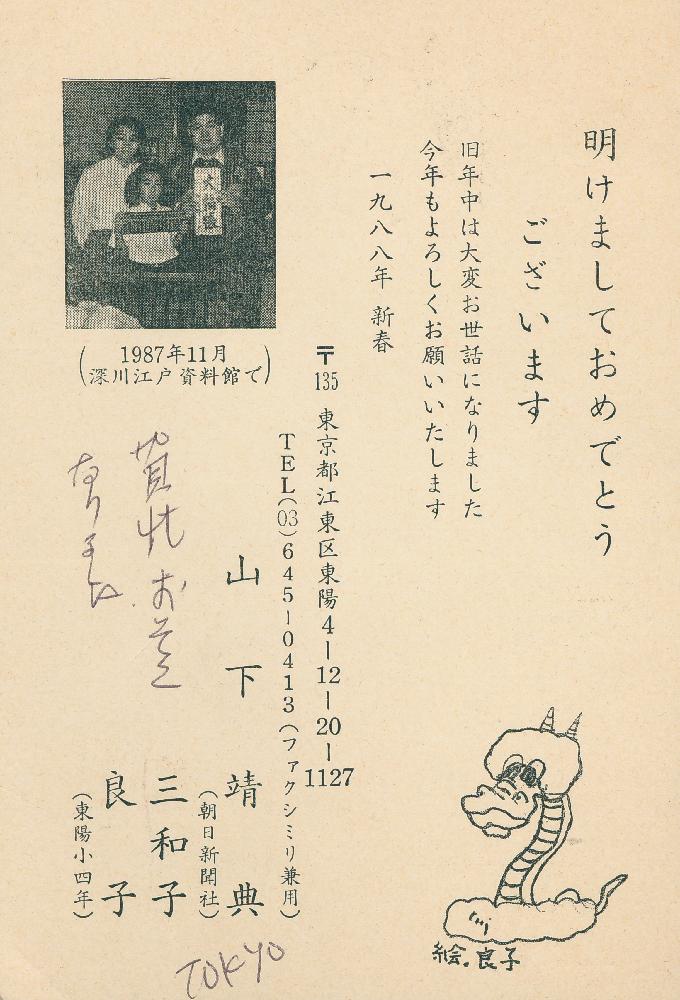 明けましておめでとう
ございます
旧年中は大変お世話になりました
今年もよろしくお願いいたします
一九八八年 新春
〒135 東京都江東区東陽4-12-20-1127
TEL(03)645-0413(ファクシミリ兼用)
山下 靖典
(朝日新聞社)
三和子
良子
(東陽小四年)
(1987年11月
深川江戸資料館で)
TOKYO
絵.良子